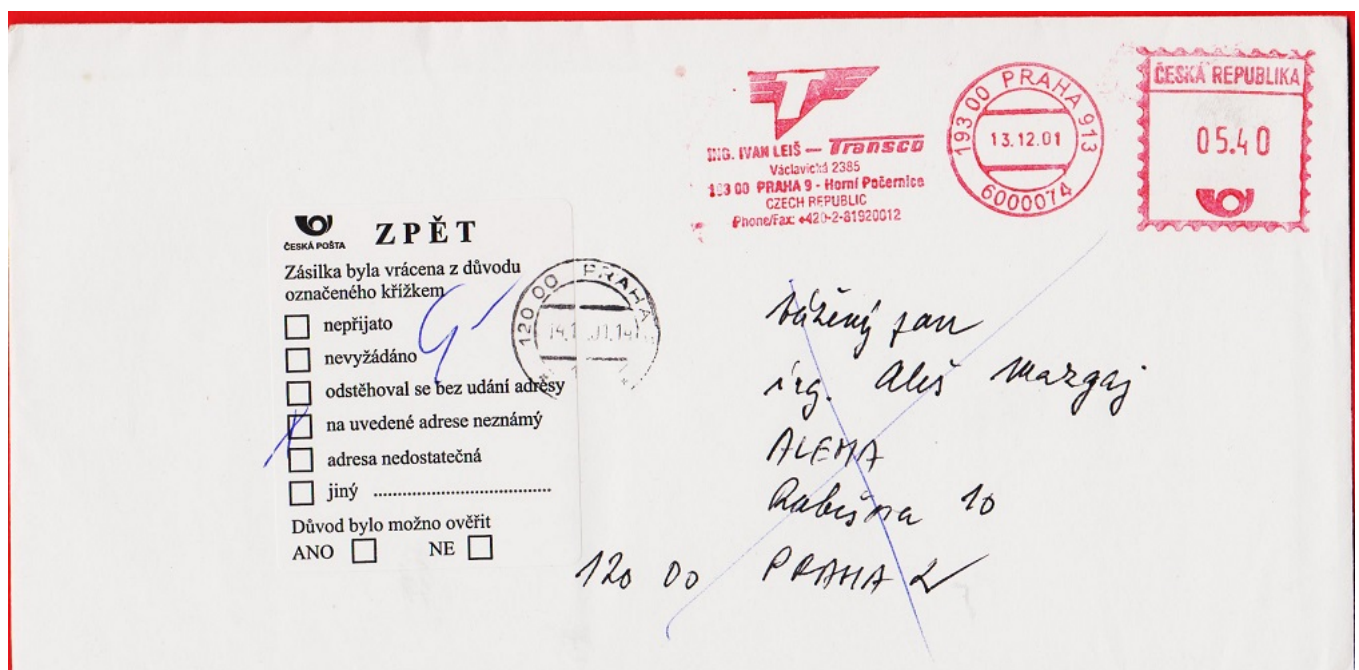 ING. IVAN LEIŠ — Transco
Václavická 2385
193 00 PRAHA 9 - Horní Počernice
CZECH REPUBLIC
Phone/Fax: +420-2-81920012
193 00 PRAHA 913
13.12.01
6000074
ČESKÁ REPUBLIKA
05.40
ČESKÁ POŠTA
ZPĚT
Zásilka byla vrácena z důvodu
označeného křížkem
nepřijato
nevyžádáno
odstěhoval se bez udání adresy
na uvedené adrese neznámý
adresa nedostatečná
jiný
Důvod bylo možno ověřit
ANO NE
120 00 PRAHA
Vážený pan
ing. Aleš Mazgaj
ALEMA
10
120 00 PRAHA 2